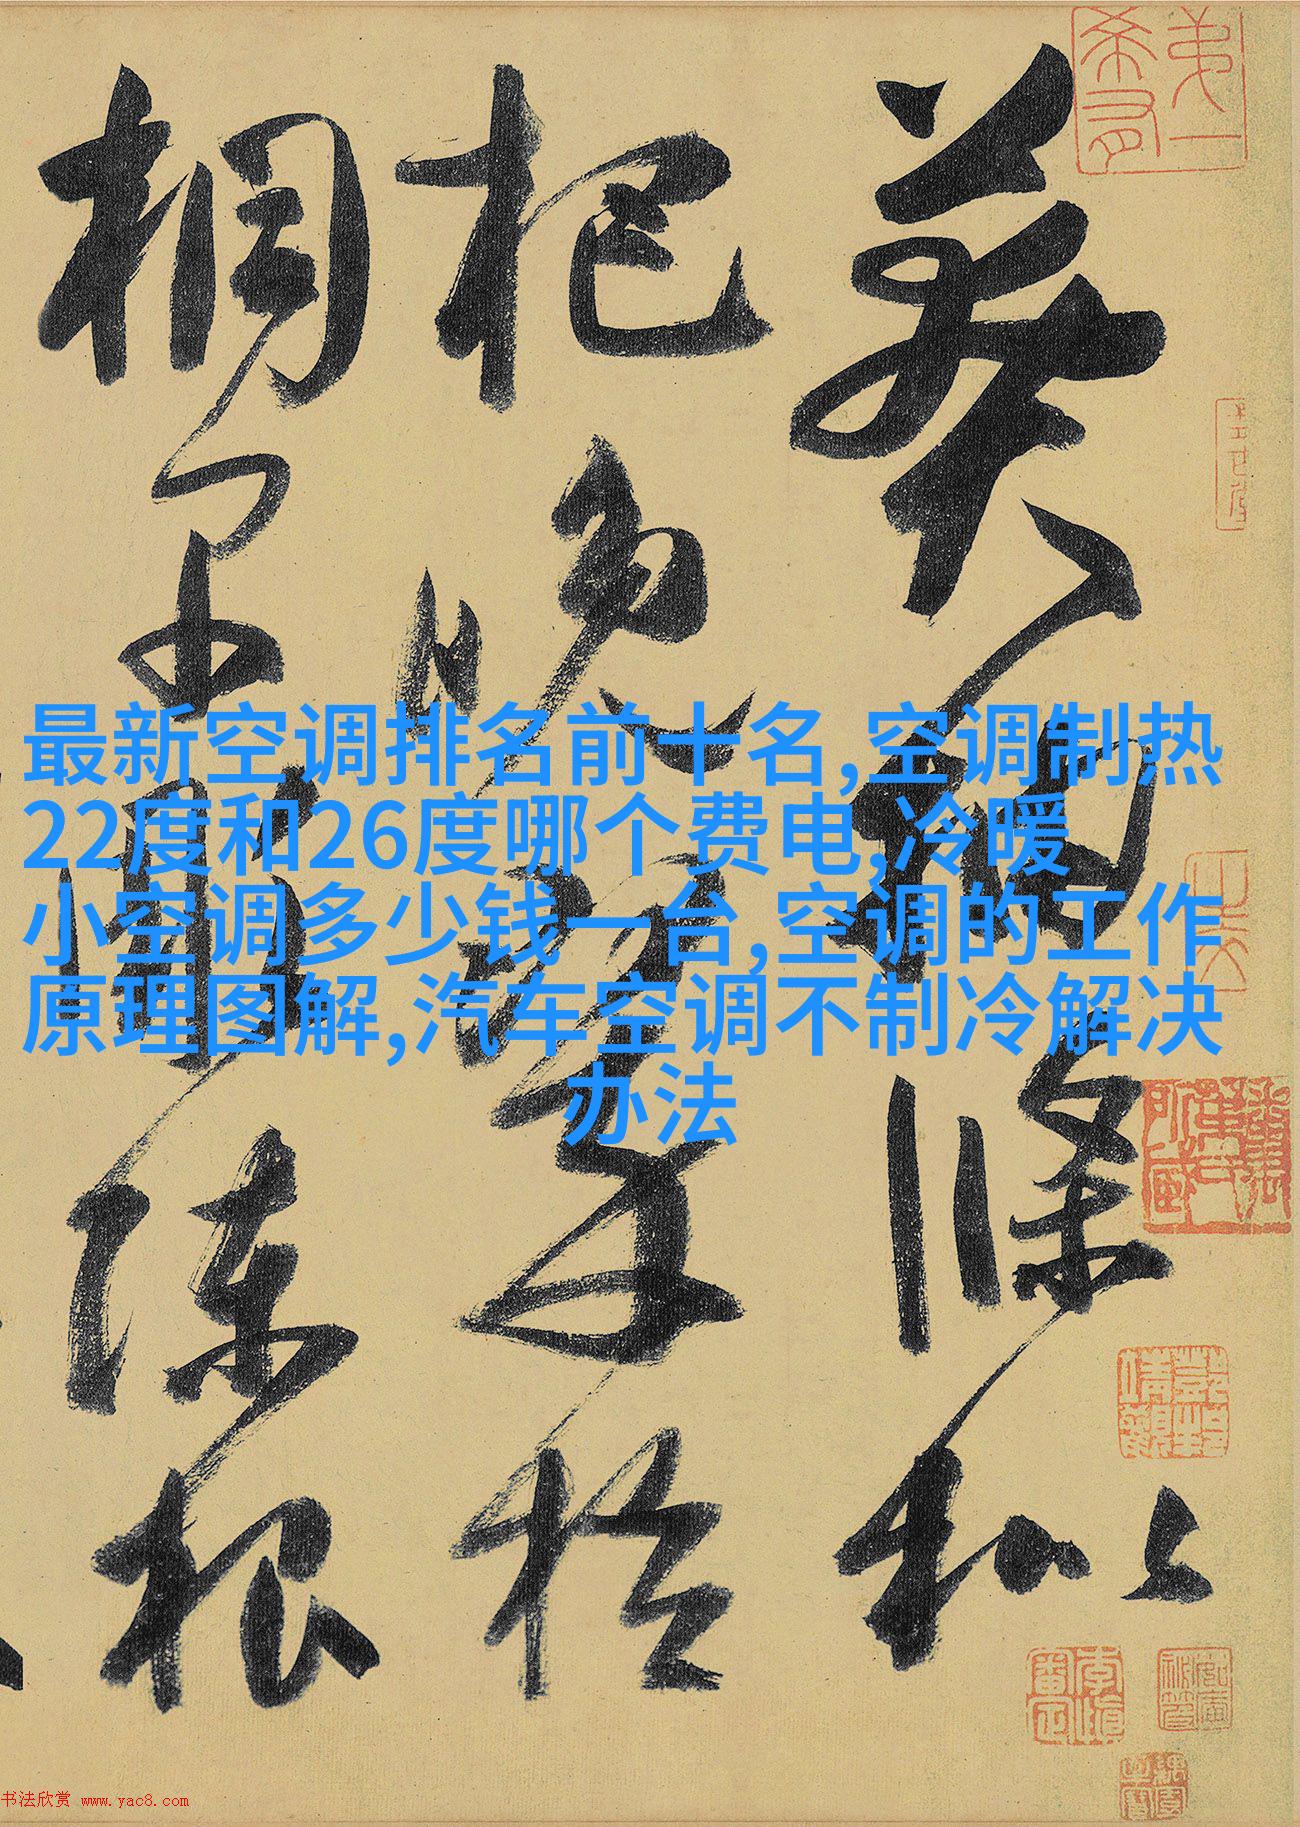 最新空调排名前十名,空调制热
22度和26度哪个费电,冷暖
小空调多少钱一台,空调的工作
原理图解,汽车空调不制冷解决
办法
莽抽條枇
杷晚翠梧
桐早凋陳根
书法欣赏 www.yac8.com